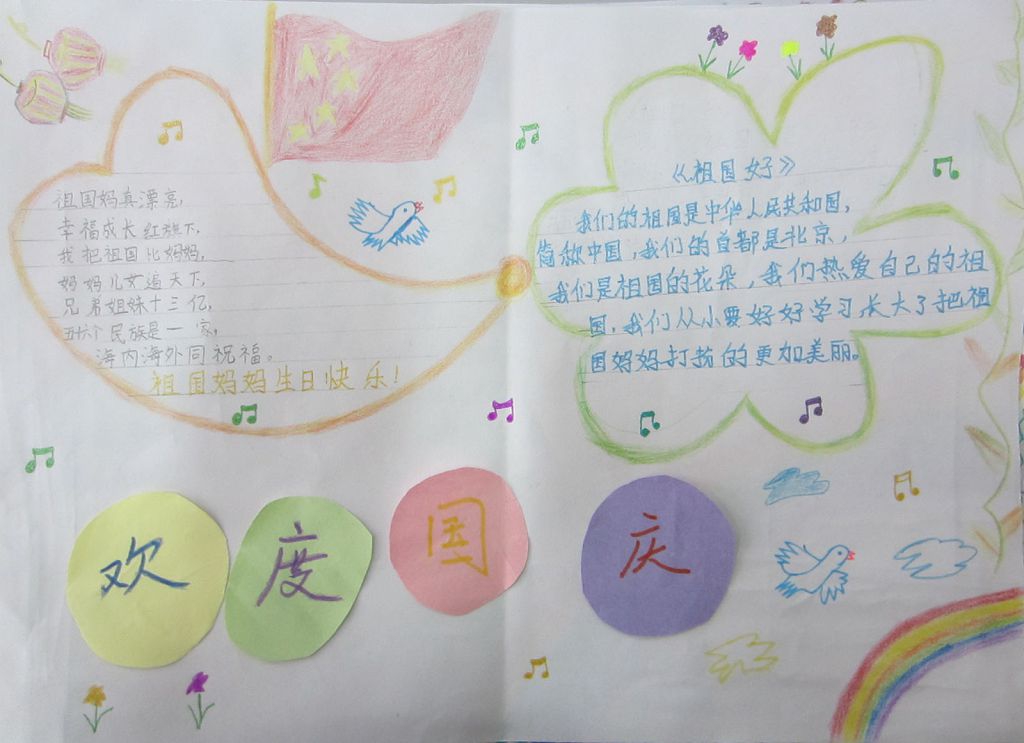 祖国妈真漂亮,
幸福成长红旗下,
我把祖国比妈妈,
妈妈儿女遍天下,
兄弟姐妹十三亿,
五十六个民族是一家,
海内海外同祝福。
祖国妈妈生日快乐!
《祖国好》
我们的祖国是中华人民共和国,
简称中国,我们的首都是北京,
我们是祖国的花朵,我们热爱自己的祖
国,我们从小要好好学习长大了把祖
国妈妈打扮的更加美丽。
欢度国庆